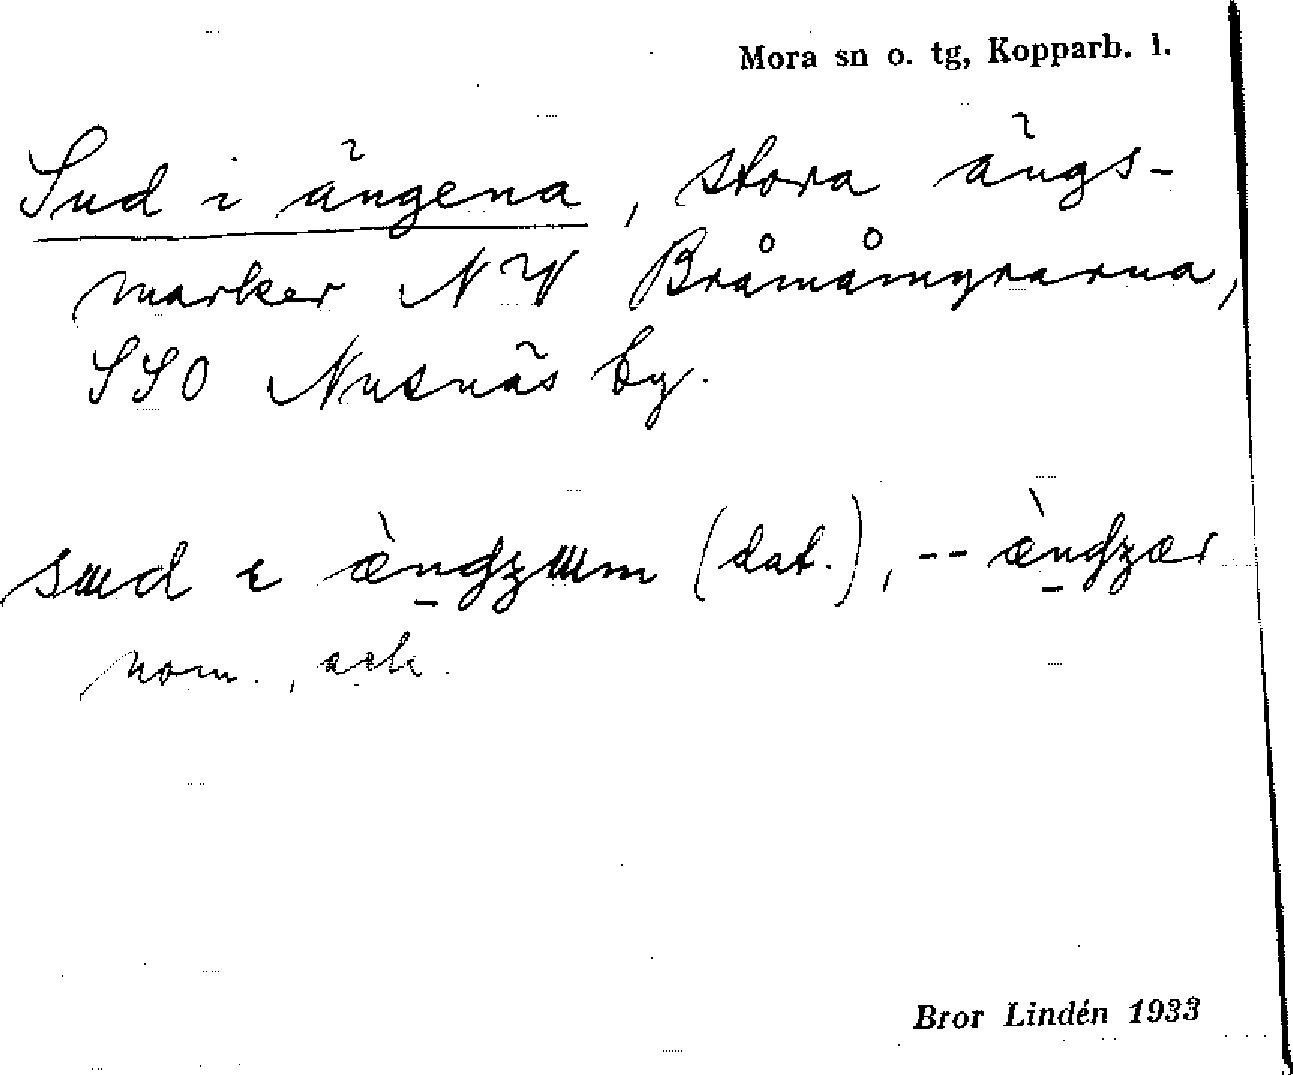 Mora sn o. tg, Kopparb. l.
Sud i ängena, stora ängs-
marker NV Bråmåmyrarna,
SSO Nusnäs by.
sɯd ɪ æ̀ngʒɯm (dat.), -- æ̀ngʒær
nom., ack.
Bror Lindén 1933